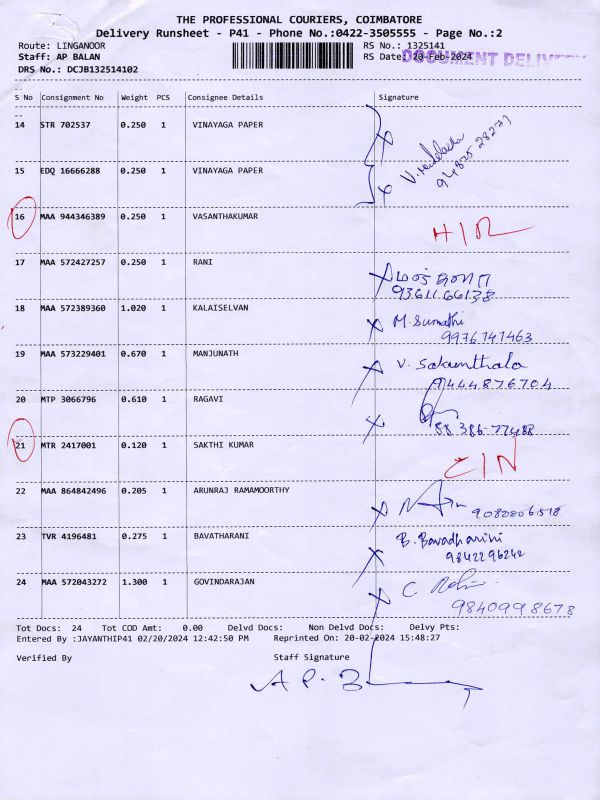 THE PROFESSIONAL COURIERS, COIMBATORE
Delivery Runsheet - P41 - Phone No.:0422-3505555 - Page No.:2
Route: LINGANOOR RS No.: 1325141
Staff: AP BALAN RS Date: 20-Feb-2024 DOCUMENT DELIV
DRS No.: DCJB132514102
S No Consignment No Weight PCS Consignee Details Signature
14 STR 702537 0.250 1 VINAYAGA PAPER
15 EDQ 16666288 0.250 1 VINAYAGA PAPER
16 MAA 944346389 0.250 1 VASANTHAKUMAR
17 MAA 572427257 0.250 1 RANI
9361166138
18 MAA 572389360 1.020 1 KALAISELVAN M. Sumathi
9976747463
19 MAA 573229401 0.670 1 MANJUNATH V. Sakunthala
9444876704
20 MTP 3066796 0.610 1 RAGAVI
88 386-77488
21 MTR 2417001 0.120 1 SAKTHI KUMAR C/N
22 MAA 864842496 0.205 1 ARUNRAJ RAMAMOORTHY
9080006518
23 TVR 4196481 0.275 1 BAVATHARANI B. Bavadharini
9842296242
24 MAA 572043272 1.300 1 GOVINDARAJAN
9840998678
Tot Docs: 24 Tot COD Amt: 0.00 Delvd Docs: Non Delvd Docs: Delvy Pts:
Entered By :JAYANTHIP41 02/20/2024 12:42:50 PM Reprinted On: 20-02-2024 15:48:27
Verified By Staff Signature
A P. B